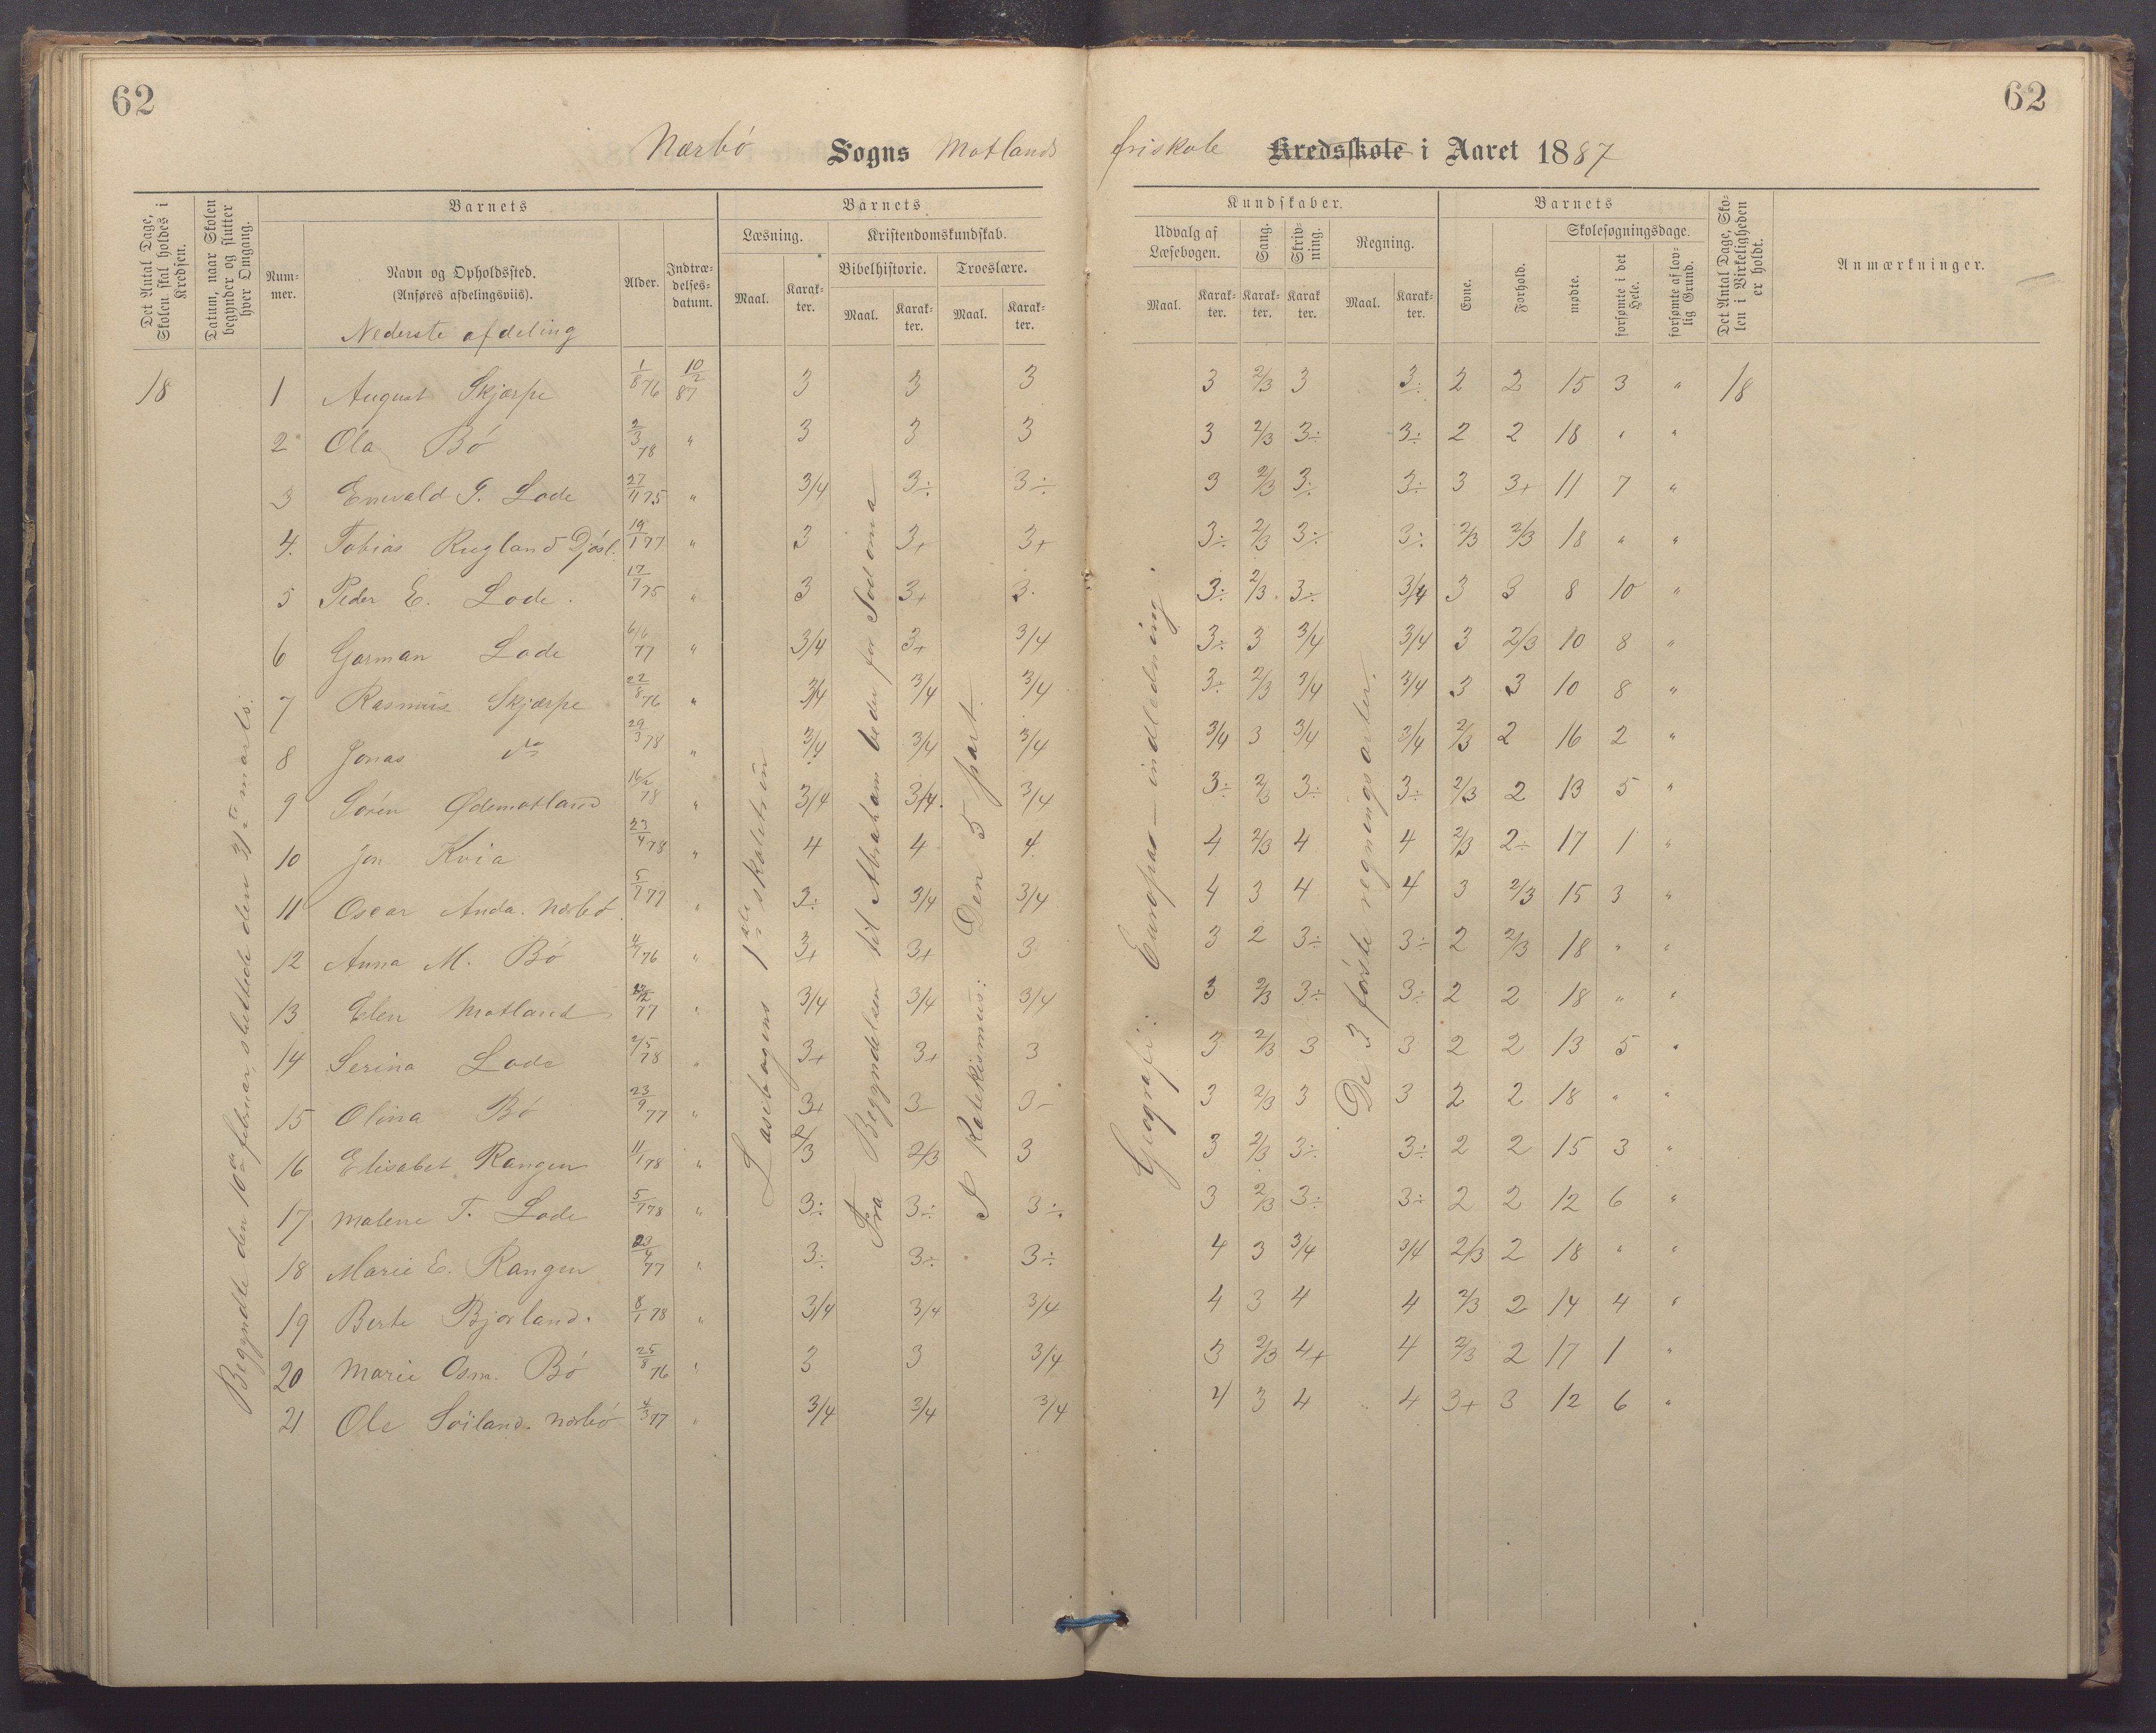 62
62
Nærbö Sogns Motlands friskole Kredsskole i Aaret 1887
Det Antal Dage, Skolen skal holdes i Kredsen.
Datum, naar Skolen begynder og slutter hver Omgang.
Barnets
Barnets
Kundskaber.
Barnets
Det Antal Dage, Skolen i Virkeligheden er holdt.
Anmærkninger.
Nummer.
Navn og Opholdssted. (Anføres afdelingsviis).
Alder.
Indtrædelsesdatum.
Læsning.
Kristendomskundskab.
Bibelhistorie.
Troeslære.
Udvalg af Læsebogen.
Sang.
Skrivning.
Regning.
Evne.
Forhold.
Skolesøgningsdage.
mødte.
forsømte i det Hele.
forsømte af lovlig Grund.
Maal. Karakter. Maal. Karakter. Maal. Karakter. Maal. Karakter. Karakter. Karakter Maal. Karakter.
Nederste afdeling
18 1 August Skjærpe 1/8 76 10/2 87 3 3 3 3 2/3 3 3÷ 2 2 15 3 " 18
2 Ola Bö 2/3 78 " 3 3 3 3 2/3 3÷ 3÷ 2 2 18 " "
3 Enevald G. Lode 27/11 75 " 3/4 3÷ 3÷ 3 2/3 3÷ 3÷ 3 3+ 11 7 "
4. Tobias Rugland Djösl. 19/1 77 " 3 3+ 3+ 3÷ 2/3 3÷ 3÷ 2/3 2/3 18 " "
5 Peder E. Lode. 17/1 75 " 3 3+ 3. 3÷ 2/3 3÷ 3/4 3 3 8 10 "
6 Garman Lode 6/6 77 " 3/4 3+ 3/4 3÷ 3 3/4 3/4 3 2/3 10 8 "
7 Rasmus Skjærpe 22/8 76 " 3/4 3/4 3/4 3÷ 2/3 3/4 3/4 3 3 10 8 "
8 Jonas do 29/3 78 " 3/4 3/4 3/4 3/4 3 3/4 3/4 2/3 2 16 2 "
9 Sören Ødemotland 16/2 78 " 3/4 3/4. 3/4 3÷ 2/3 3÷ 3÷ 2/3 2 13 5 "
10 Jon Kvia 23/4 78 " 4 4 4. 4 2/3 4 4 2/3 2÷ 17 1 "
11 Oscar Anda. Nærbö. 5/7 77 " 3÷ 3/4 3/4 4 3 4 4 3 2/3 15 3 "
12 Anna M. Bö 4/7 76 " 3+ 3+ 3 3 2 3÷ 3÷ 2 2/3 18 " "
13 Elen Motland 77 " 3/4 3/4 3/4 3 2/3 3÷ 3÷ 2 2 18 " "
14 Serina Lode 2/5 78 " 3+ 3+ 3 3 2/3 3 3 2 2 13 5 "
15 Olina Bö 23/9 77 " 3+ 3- 3- 3 2/3 3 3 2 2 18 " "
16 Elisabet Rangen 11/1 78 " 2/3 2/3 3 3 2/3 3÷ 3÷ 2 2 15 3 "
17 Malene T. Lode 5/1 78 " 3÷ 3÷ 3÷ 3 2/3 3÷ 3÷ 2 2 12 6 "
18 Marie E. Rangen 23/4 77 " 3÷ 3÷ 3÷ 4 3 3/4 3/4 2/3 2 18 " "
19 Berte Bjorland. 8/1 78 " 3/4 3/4 3/4 4 3 4 4 2/3 2 14 4 "
20 Marie Osm. Bö 25/8 76 " 3 3 3/4 3 2/3 4+ 4 2/3 2 17 1 "
21 Ole Söiland. Nærbö 4/3 77 " 3/4 3/4 3/4 4 3 4 4 3+ 3 12 6 "
Begyndte den 10de februar, sluttede den 31te marts.
Læsebogens 1ste skoletrin
Fra Begyndelsen til Abraham beder for Sodoma
I Katekismus: Den 5 part.
Geografi: Europas indledning.
De 3 förste regningsarter.